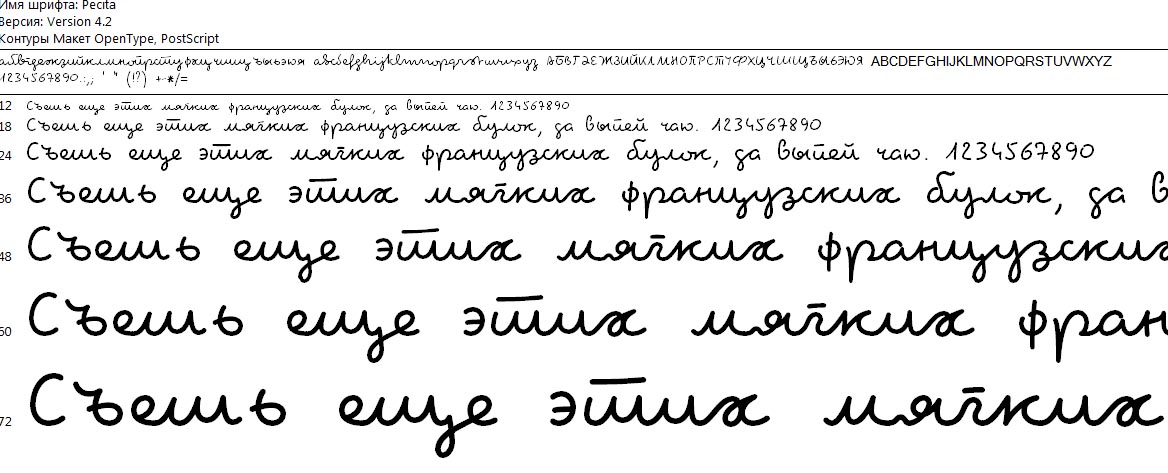 Имя шрифта: Pecita
Версия: Version 4.2
Контуры Макет OpenType, PostScript
абвгдежзийклмнопрстуфхцчшщъыьэюя abcdefghijklmnopqrstuvwxyz АБВГДЕЖЗИЙКЛМНОПРСТУФХЦЧШЩЪЫЬЭЮЯ ABCDEFGHIJKLMNOPQRSTUVWXYZ
1234567890.:,; ' " (!?) +-*/=
12 Съешь еще этих мягких французских булок, да выпей чаю. 1234567890
18 Съешь еще этих мягких французских булок, да выпей чаю. 1234567890
24 Съешь еще этих мягких французских булок, да выпей чаю. 1234567890
36 Съешь еще этих мягких французских булок, да в
48 Съешь еще этих мягких французских
60 Съешь еще этих мягких фран
72 Съешь еще этих мягких